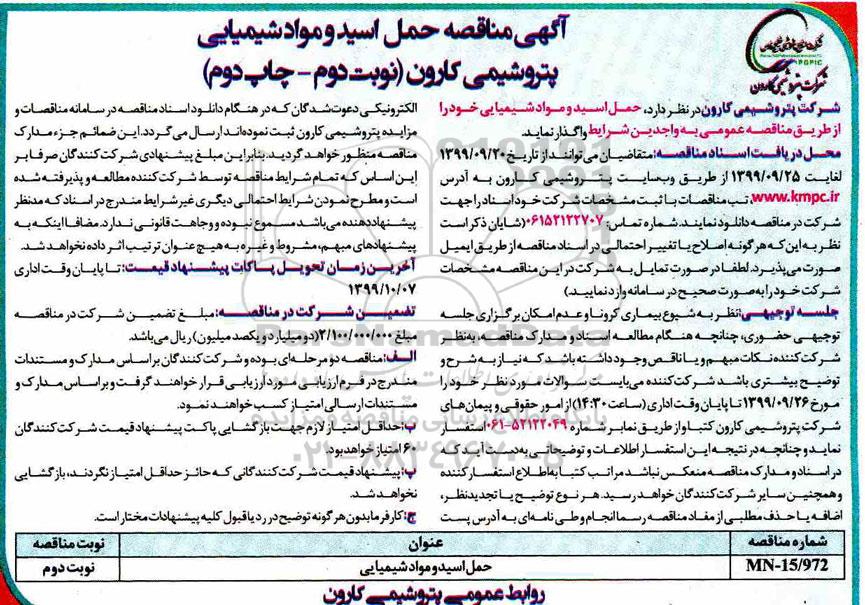 آگهی مناقصه حمل اسید و مواد شیمیایی
پتروشیمی کارون (نوبت دوم - چاپ دوم)
PGPIC
شرکت پتروشیمی کارون
شرکت پتروشیمی کارون در نظر دارد، حمل اسید و مواد شیمیایی خود را
از طریق مناقصه عمومی به واجدین شرایط واگذار نماید.
محل دریافت اسناد مناقصه: متقاضیان می‌توانند از تاریخ ۱۳۹۹/۰۹/۲۰
لغایت ۱۳۹۹/۰۹/۲۵ از طریق وب‌سایت پتروشیمی کارون به آدرس
www.kmpc.ir، تب مناقصات با ثبت مشخصات شرکت خود اسناد را جهت
شرکت در مناقصه دانلود نمایند. شماره تماس: ۰۶۱۵۲۱۲۲۷۰۷ (شایان ذکر است
نظر به این‌که هرگونه اصلاح یا تغییر احتمالی در اسناد مناقصه از طریق ایمیل
صورت می‌پذیرد. لطفا در صورت تمایل به شرکت در این مناقصه مشخصات
شرکت خود را به صورت صحیح در سامانه وارد نمایید.)
جلسه توجیهی: نظر به شیوع بیماری کرونا و عدم امکان برگزاری جلسه
توجیهی حضوری، چنانچه هنگام مطالعه اسناد و مدارک مناقصه، به‌نظر
شرکت‌کننده نکات مبهم و یا ناقص وجود داشته باشد که نیاز به شرح و
توضیح بیشتری باشد شرکت‌کننده می‌بایست سوالات مورد نظر خود را
مورخ ۱۳۹۹/۰۹/۲۶ تا پایان وقت اداری (ساعت ۱۴:۳۰) از امور حقوقی و پیمان‌های
شرکت پتروشیمی کارون کتبا و از طریق نمابر شماره ۵۲۱۲۲۰۴۹-۰۶۱ استفسار
نماید و چنانچه در نتیجه این استفسار اطلاعات و توضیحاتی به‌دست آید که
در اسناد و مدارک مناقصه منعکس نباشد مراتب کتبا به اطلاع استفسارکننده
و همچنین سایر شرکت‌کنندگان خواهد رسید. هر نوع توضیح یا تجدیدنظر،
اضافه یا حذف مطلبی از مفاد مناقصه رسما انجام و طی نامه‌ای به آدرس پست
الکترونیکی دعوت‌شدگان که در هنگام دانلود اسناد مناقصه در سامانه مناقصات و
مزایده پتروشیمی کارون ثبت نموده‌اند ارسال می‌گردد. این ضمائم جزء مدارک
مناقصه منظور خواهد گردید. بنابراین مبلغ پیشنهادی شرکت‌کنندگان صرفا بر
این اساس که تمام شرایط مناقصه توسط شرکت‌کننده مطالعه و پذیرفته شده
است و مطرح نمودن شرایط احتمالی دیگری غیر شرایط مندرج در اسناد که مدنظر
پیشنهاددهنده می‌باشد مسموع نبوده و وجاهت قانونی ندارد. مضافا اینکه به
پیشنهادهای مبهم، مشروط و غیره به هیچ عنوان ترتیب اثر داده نخواهد شد.
آخرین زمان تحویل پاکات پیشنهاد قیمت: تا پایان وقت اداری
۱۳۹۹/۱۰/۰۷
تضمین شرکت در مناقصه: مبلغ تضمین شرکت در مناقصه
مبلغ ۲/۱۰۰/۰۰۰/۰۰۰ (دو میلیارد و یکصد میلیون) ریال می‌باشد.
الف: مناقصه دو مرحله‌ای بوده و شرکت‌کنندگان بر اساس مدارک و مستندات
مندرج در فرم ارزیابی مورد ارزیابی قرار خواهند گرفت و بر اساس مدارک و
مستندات ارسالی امتیاز کسب خواهند نمود.
ب: حداقل امتیاز لازم جهت بازگشایی پاکت پیشنهاد قیمت شرکت‌کنندگان
۶۰ امتیاز خواهد بود.
پ: پیشنهاد قیمت شرکت‌کنندگانی که حائز حداقل امتیاز نگردند، بازگشایی
نخواهد شد.
ج: کارفرما بدون هرگونه توضیح در رد یا قبول کلیه پیشنهادات مختار است.
شماره مناقصه عنوان نوبت مناقصه
MN-15/972 حمل اسید و مواد شیمیایی نوبت دوم
روابط عمومی پتروشیمی کارون
ParsNamadData
پایگاه اطلاع رسانی مناقصه و مزایده
۰۲۱-۸۸۳۴۹۶۷۰-۵